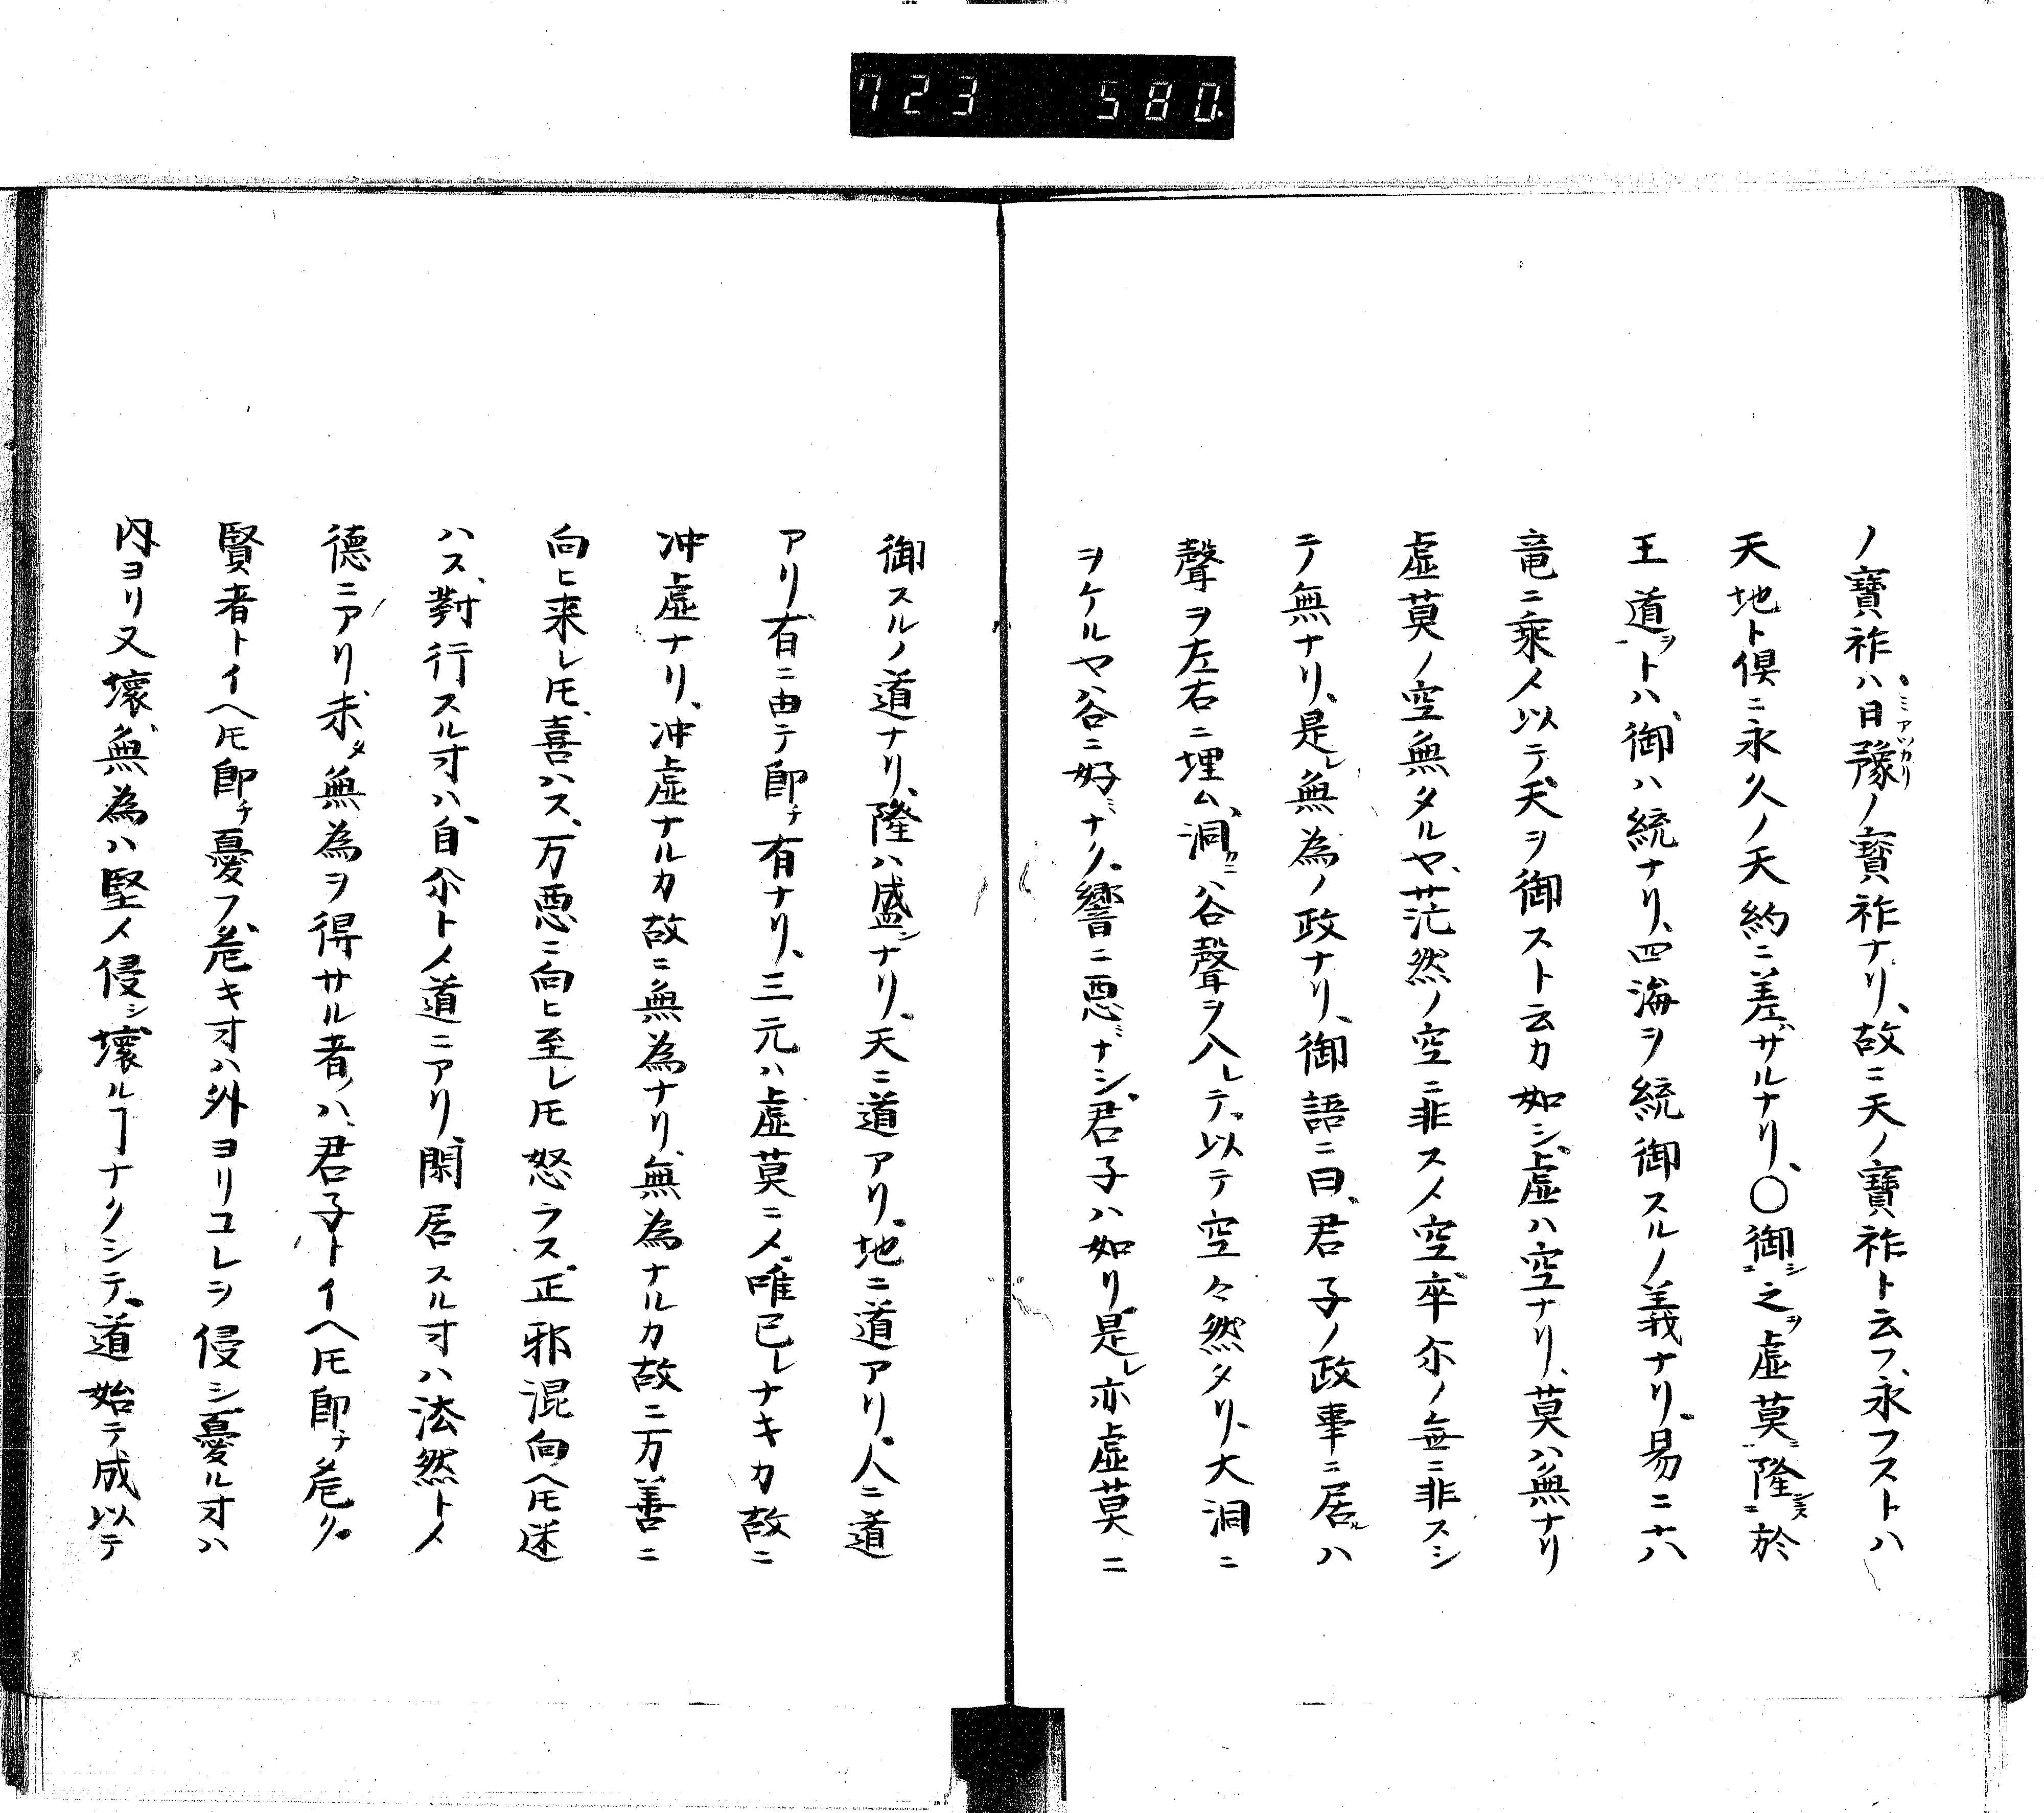 723 580.
ノ寶祚ハ日豫ミアツカリノ寳祚ナリ、故ニ天ノ寶祚ト云フ、永フストハ
天地ト倶ニ永久ノ天約ニ差ザルナリ、〇御シ二之ヲ虚莫ニ一隆ニス二於
王道ヲ一トハ、御ハ統ナリ、四海ヲ統御スルノ義ナリ、易ニ六
竜ニ乘メ以テ天ヲ御スト云カ如シ、虚ハ空ナリ、莫ハ無ナリ
虚莫ノ空無タルヤ、茫然ノ空ニ非スメ空卒尓ノ無ニ非スシ
テ無ナリ、是レ無為ノ政ナリ、御語ニ曰、君子ノ政事ニ居ルハ
聲ヲ左右ニ埋ム、洞カニハ谷聲ヲ入レテ、以テ空々然タリ、大洞ニ
ヲケルヤ谷ニ好ミナク、響ニ悪ミナシ、君子ハ如リ是レ亦虚莫ニ
御スルノ道ナリ、隆ハ盛シナリ、天ニ道アリ、地ニ道アリ、人ニ道
アリ有ニ由テ即チ有ナリ、三元ハ虚莫ニメ、唯已レナキカ故ニ
冲虚ナリ、冲虚ナルカ故ニ無為ナリ、無為ナルカ故ニ万善ニ
向ヒ来レ𪜈、喜ハス、万悪ニ向ヒ至レ𪜈怒ラス、正邪混向ヘ𪜈迷
ハス、對行スル寸ハ、自尓トメ道ニアリ、閑居スル寸ハ法然トメ
德ニアリ、未タ無為ヲ得サル者ハ、君子トイヘ𪜈即チ危ク、
賢者トイヘ𪜈即チ憂フ、危キ寸ハ外ヨリコレヲ侵シ、憂ル寸ハ
内ヨリ又壞、無為ハ堅メ侵シ壞ルヿナクシテ、道始テ成以テ